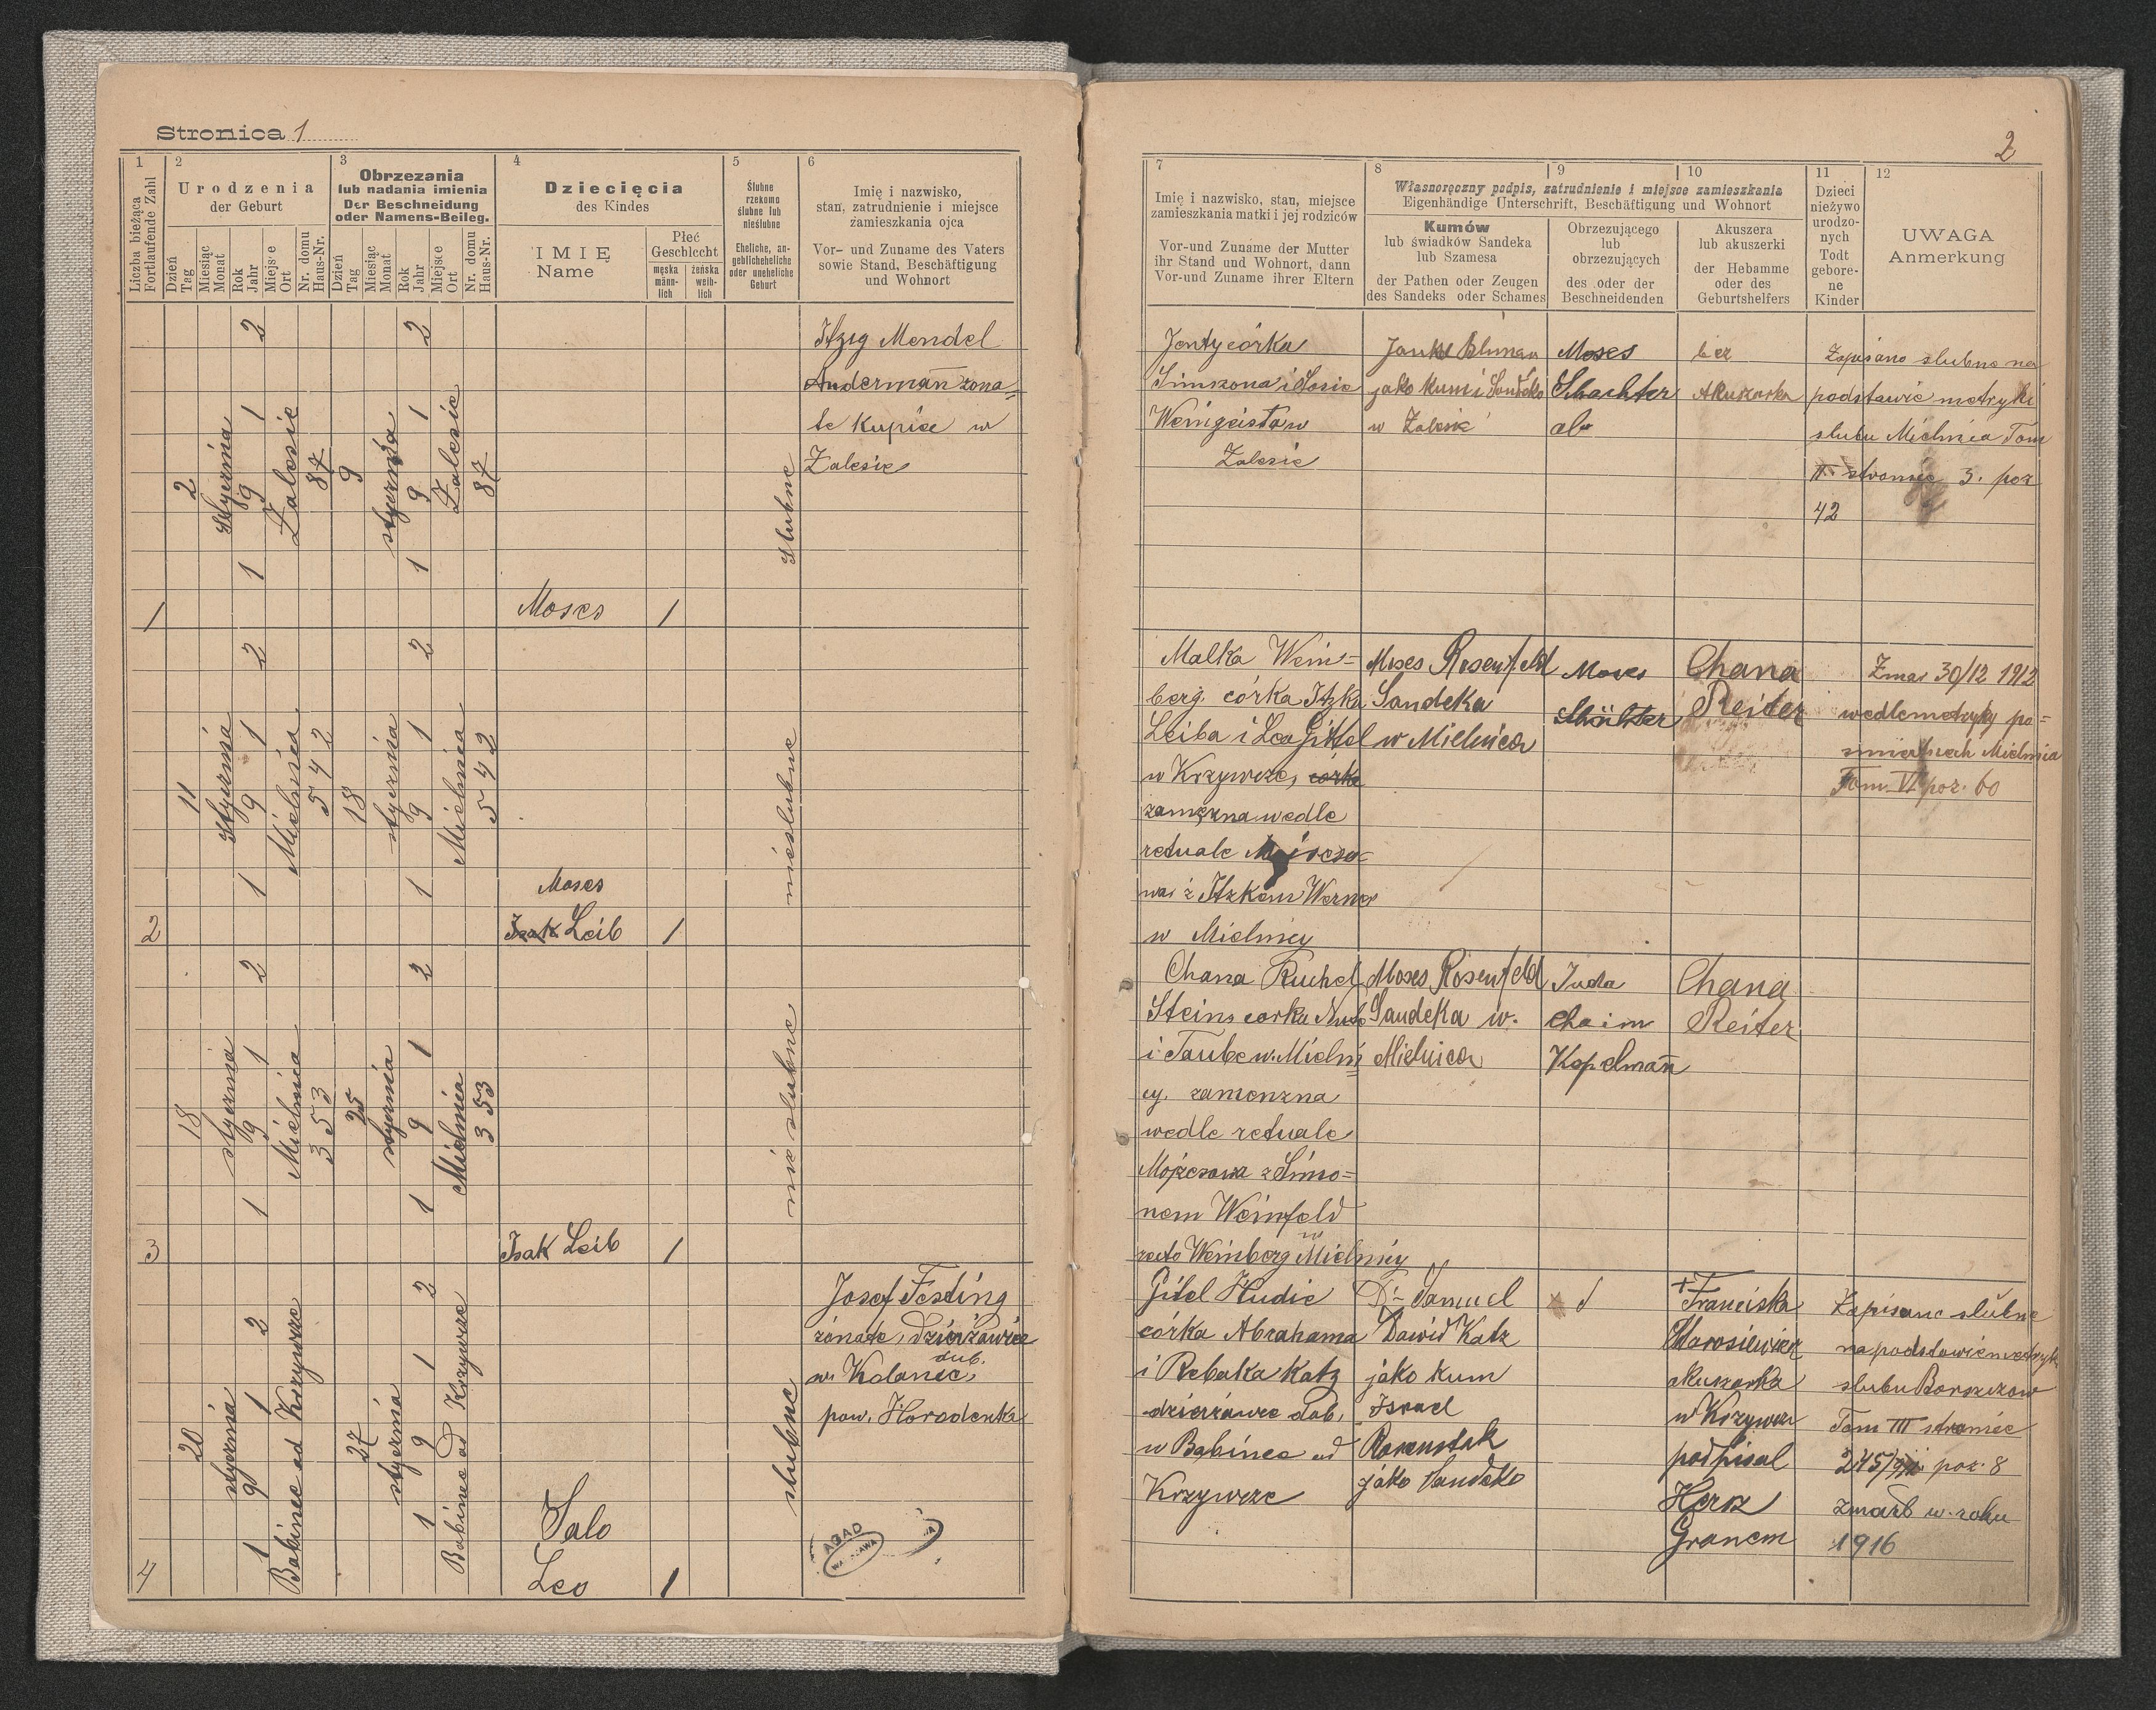 Stronica 1
1
2
3
4
5
6
Liczba bieżąca
Fortlaufende Zahl
Urodzenia
der Geburt
Obrzezania
lub nadania imienia
Der Beschneidung
oder Namens-Beileg.
Dziecięcia
des Kindes
Ślubne
rzekomo
ślubne lub
nieślubne
Eheliche, an-
geblicheheliche
oder uneheliche
Geburt
Imię i nazwisko,
stan, zatrudnienie i miejsce
zamieszkania ojca
Vor- und Zuname des Vaters
sowie Stand, Beschäftigung
und Wohnort
Dzień
Tag
Miesiąc
Monat
Rok
Jahr
Miejsce
Ort
Nr. domu
Haus-Nr.
Dzień
Tag
Miesiąc
Monat
Rok
Jahr
Miejsce
Ort
Nr. domu
Haus-Nr.
IMIĘ
Name
Płeć
Geschlecht
męska
männ-
lich
żeńska
weib-
lich
1
2
stycznia
1 9 1 2
Zalesie
87
9
stycznia
1 9 1 2
Zalesie
87
Moses
1
slubne
Itzig Mendel
Anderman̄ żona=
te kupiec w
Zalesie
2
11
stycznia
1 9 1 2
Mielnica
542
18
stycznia
1 9 1 2
Mielnica
542
Moses
Isak Leib
1
nieslubne
3
18
stycznia
1 9 1 2
Mielnica
353
25
stycznia
1 9 1 2
Mielnica
353
Isak Leib
1
nie slubne
4
20
stycznia
1 9 1 2
Babince ad Krzywcze
27
stycznia
1 9 1 2
Babince ad Krzywcze
Salo
Leo
1
slubne
Josef Festing
żonate, dzierżawice
dub.
w. Kolanec,
pow. Horodenka
AGAD
WARSZAWA
2
7
8
9
10
11
12
Imię i nazwisko, stan, miejsce
zamieszkania matki i jej rodziców
Vor-und Zuname der Mutter
ihr Stand und Wohnort, dann
Vor-und Zuname ihrer Eltern
Własnoręczny podpis, zatrudnienie i miejsce zamieszkania
Eigenhändige Unterschrift, Beschäftigung und Wohnort
Kumów
lub świadków Sandeka
lub Szamesa
der Pathen oder Zeugen
des Sandeks oder Schames
Obrzezującego
lub
obrzezujących
des oder der
Beschneidenden
Akuszera
lub akuszerki
der Hebamme
oder des
Geburtshelfers
Dzieci
nieżywo
urodzo-
nych
Todt
gebore-
ne
Kinder
UWAGA
Anmerkung
Jenty córka
Simszona i Sosie
Weingeista w
Zalesie
jako kum i Sandeko
w Zalesie
Moses
Schachter
bez
Akuszerka
Zapisano slubne na
podstawie metryki
slubu Mielnica Tom
II stronice 3. poz
42
Malka Wein=
berg córka Itzka
Leiba i Lea Gittel
w Krzywcze, córka
zamężna wedle
retuale Mojżeszo=
wa z Itzkem Werner
w Mielnicy
Moses Rosenfeld
Sandeka
w Mielnica
Moses
Schächter
Chana
Reiter
Zmar 30/12 1912
wedle metryky po=
smiertnech Mielnica
Tom. VI poz. 60
Chana Ruchel
Steins corka
i Taube w. Mielni=
cy. zamenzna
wedle retuale
Mojżeszowa z Simo=
nem Weinfeld
w
recto Weinberg Mielnicy
Moses Rosenfeld
Sandeka w.
Mielnica
Juda
Chaim
Kopelman̄
Chana
Reiter
Gitel Hudie
córka Abrahama
i Rebaka Katz
dzierżawce dob.
w Babince ad
Krzywcze
Dr Samuel
Dawid Katz
jako kum
Israel
Rosenstok
jako Sandeko
+ Franciska
Akuszerka
w Krzywcze
podpisal
Herz
Granem
Zapisane slubne
na podstawie metryk
slubu Borszczow
Tom III stronice
245 poz. 8
zmarł w. roku
1916